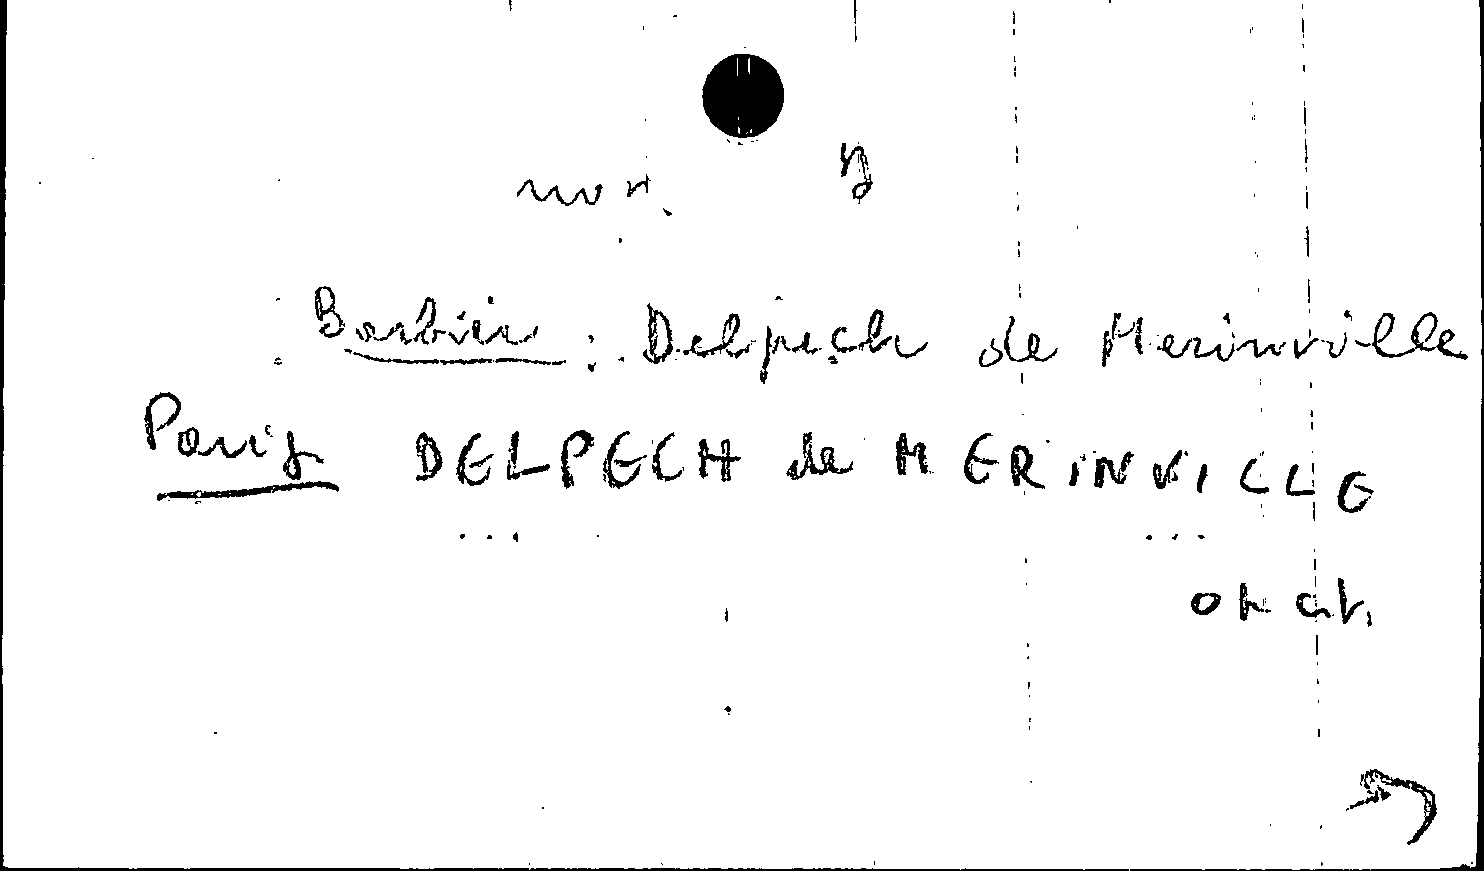 non.
Barbier : Delpech de Merinville
Paris DELPECH de MERINVILLE
... ...
OK cat.